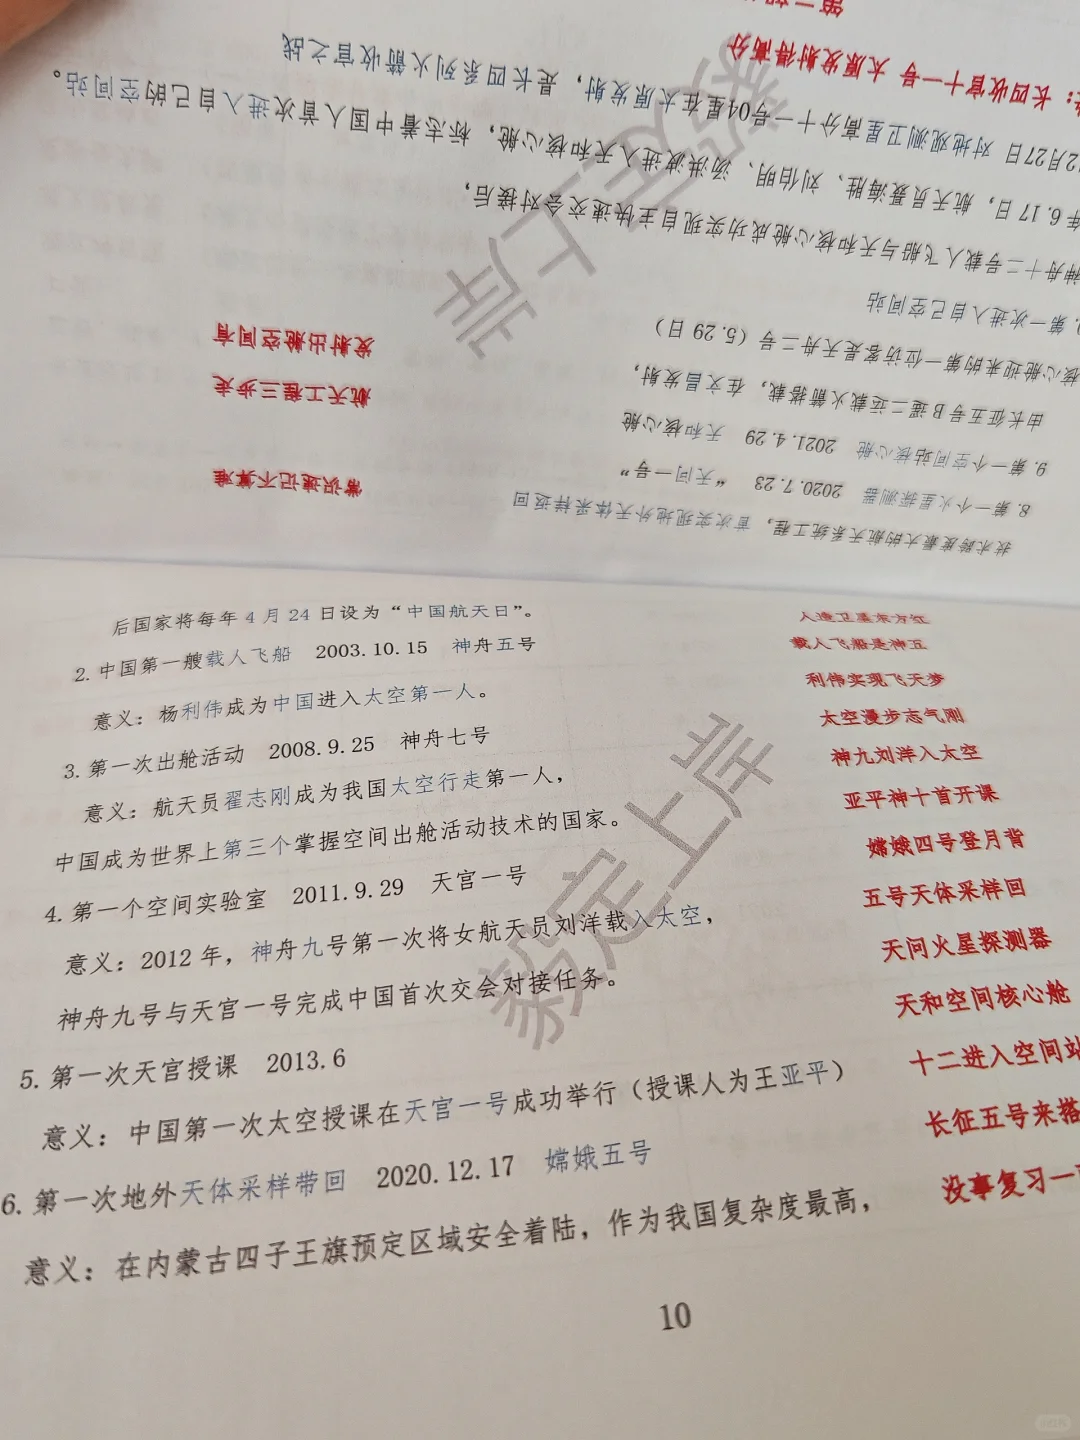 后国家将每年 4 月 24 日设为“中国航天日”。
2. 中国第一艘载人飞船 2003.10.15 神舟五号
意义：杨利伟成为中国进入太空第一人。
3. 第一次出舱活动 2008.9.25 神舟七号
意义：航天员翟志刚成为我国太空行走第一人，
中国成为世界上第三个掌握空间出舱活动技术的国家。
4. 第一个空间实验室 2011.9.29 天宫一号
意义：2012 年，神舟九号第一次将女航天员刘洋载入太空，
神舟九号与天宫一号完成中国首次交会对接任务。
5. 第一次天宫授课 2013.6
意义：中国第一次太空授课在天宫一号成功举行（授课人为王亚平）
6. 第一次地外天体采样带回 2020.12.17 嫦娥五号
意义：在内蒙古四子王旗预定区域安全着陆，作为我国复杂度最高，
人造卫星东方红
载人飞船是神五
利伟实现飞天梦
太空漫步志气刚
神九刘洋入太空
亚平神十首开课
嫦娥四号登月背
五号天体采样回
天问火星探测器
天和空间核心舱
十二进入空间站
长征五号来搭
没事复习一
10
豪定上岸
技术跨度最大的航天系统工程，首次实现地外天体采样返回
8. 第一个火星探测器 2020.7.23 “天问一号”
9. 第一个空间站核心舱 2021.4.29 天和核心舱
由长征五号 B 遥二运载火箭搭载，在文昌发射，
核心舱迎来的第一位访客是天舟二号（5.29 日）
第一次进入自己空间站
神舟十二号载人飞船与天和核心舱成功实现自主快速交会对接后，
年 6.17 日，航天员聂海胜、刘伯明、汤洪波进入天和核心舱，标志着中国人首次进入自己的空间站。
12月27日 对地观测卫星高分十一号04星在太原发射，是长四系列火箭收官之战
：长四收官十一号 太原发射得高分
常识速记不算难
航天工程三步走
发射出舱空间有